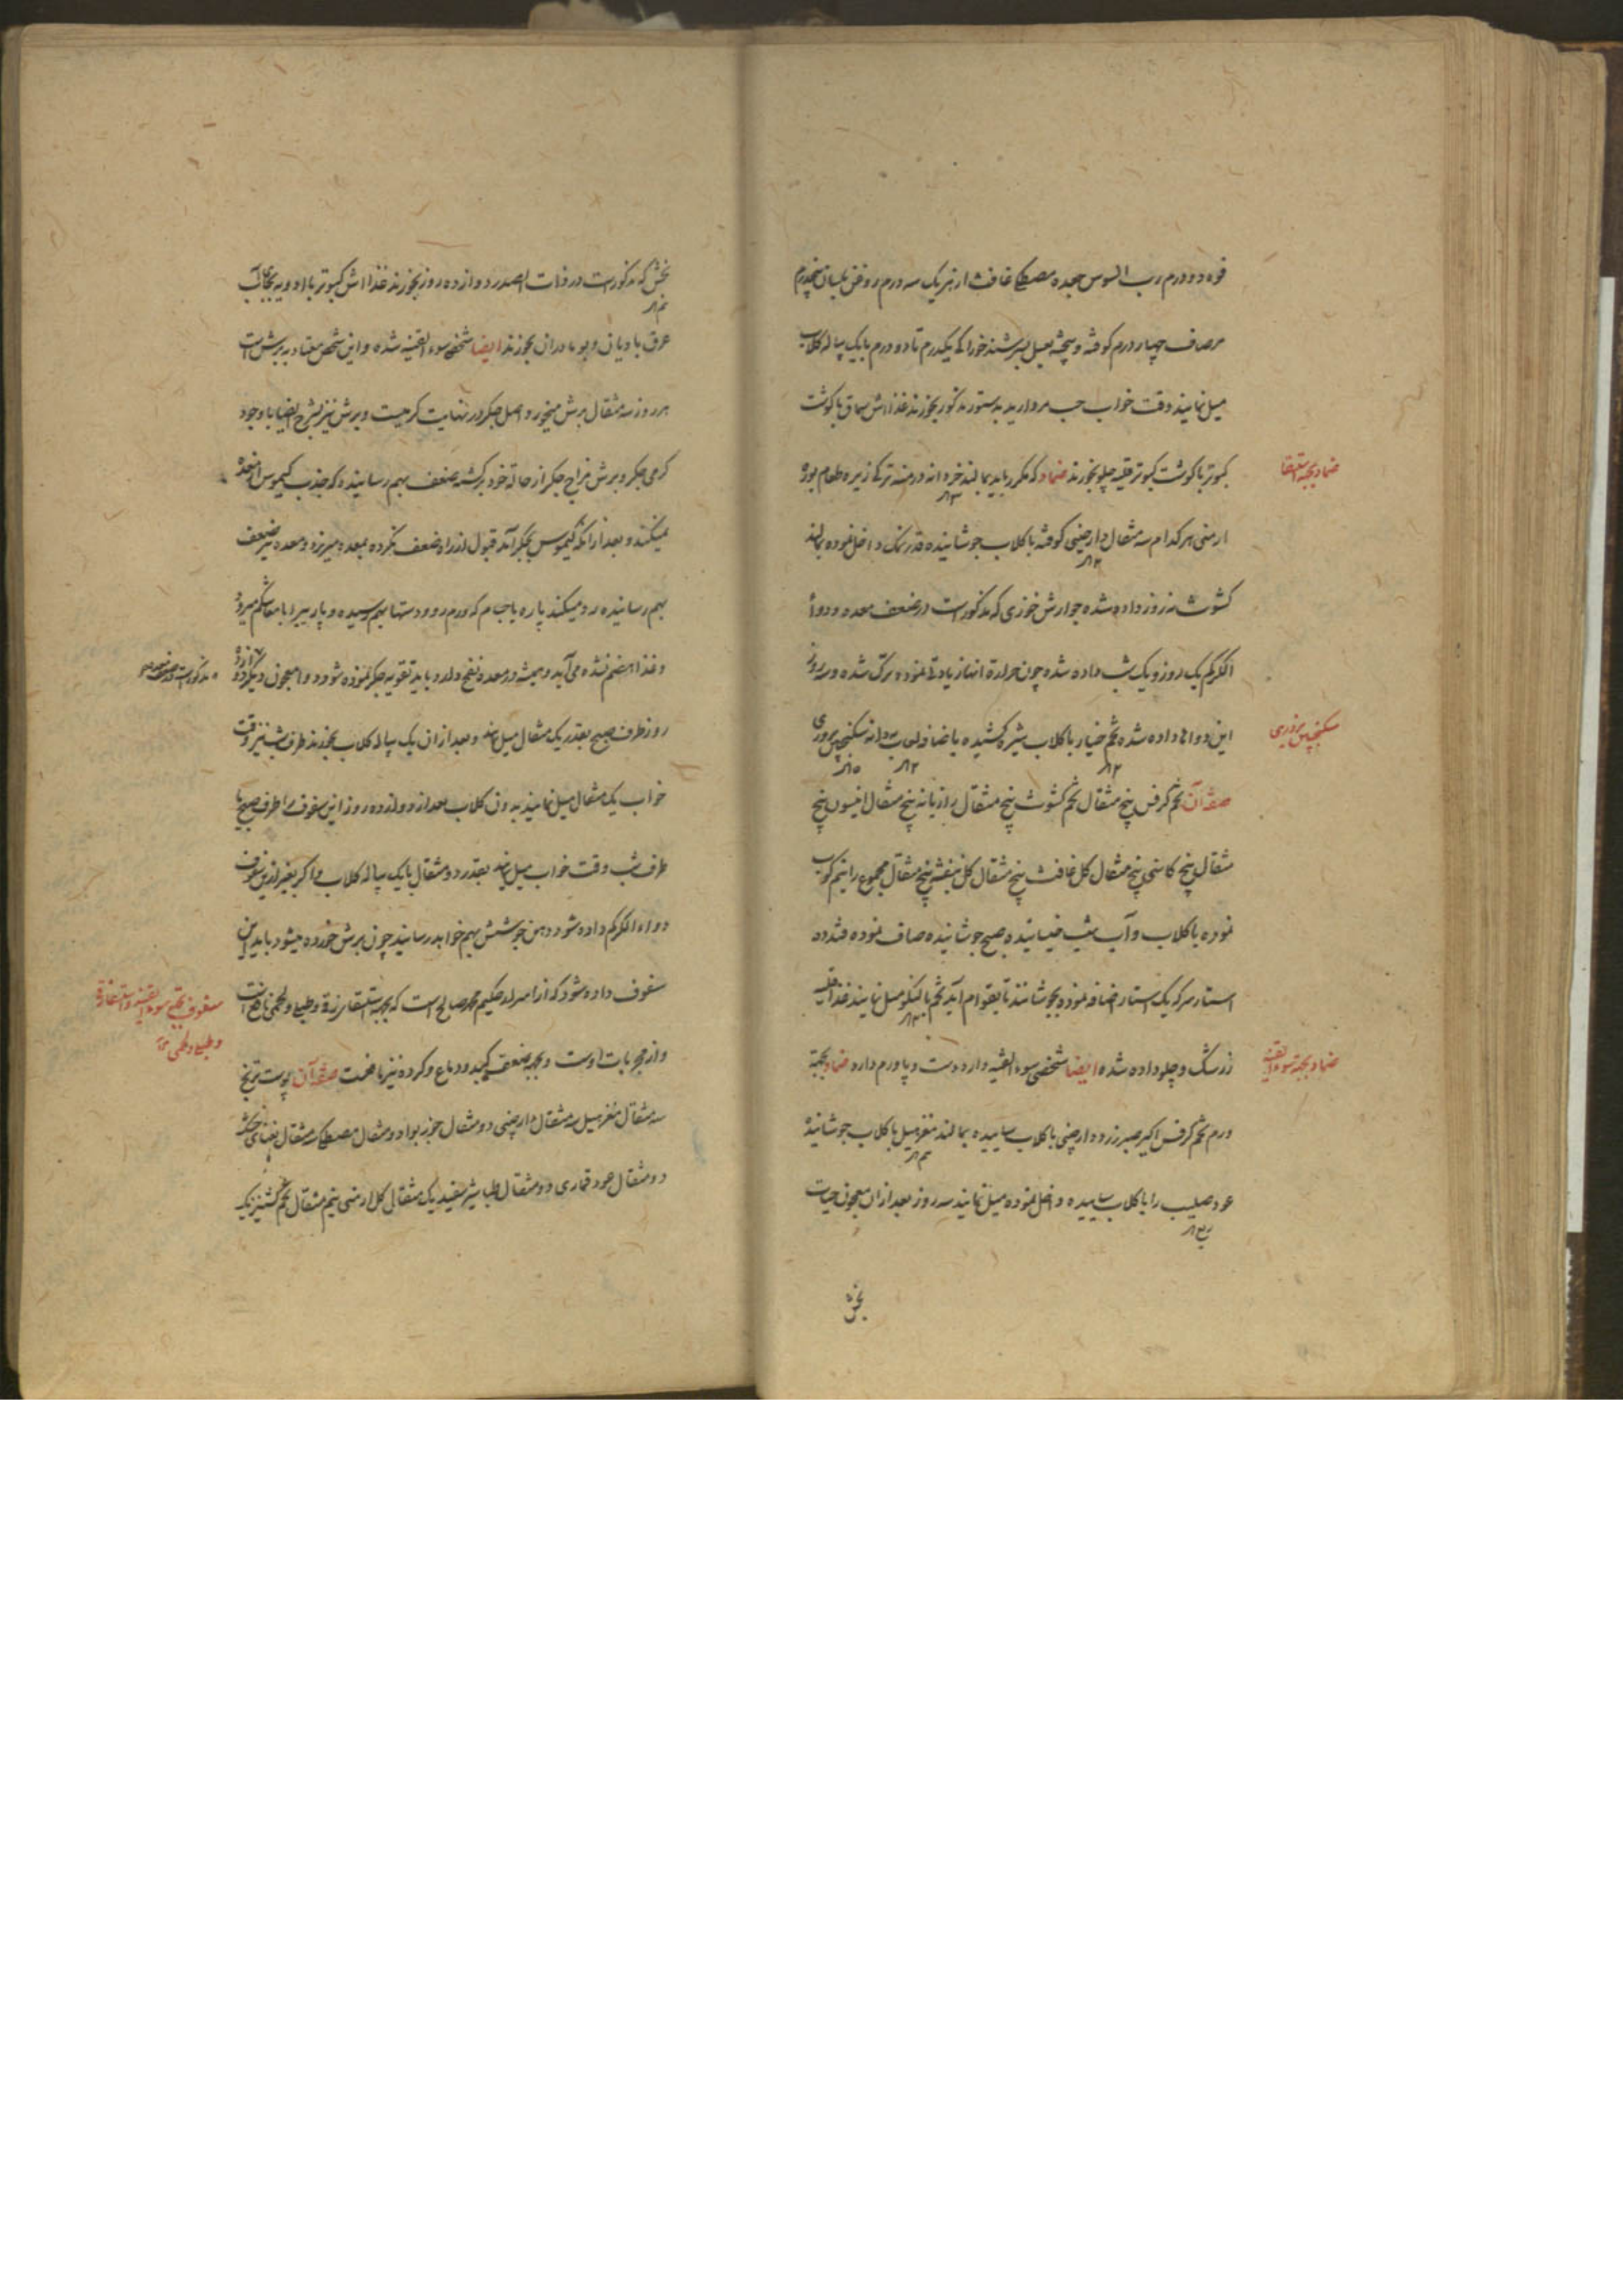 فوه دو درم رب السوس جعده مصطکی غافث از هر یک سه درم روغن بلسان پنجدرم
مرصاف چهار درم کوفته و بیخته بعسل بسرشند خوراکی یکدرم تا دو درم با یک پیاله کلاب
میل نمایند وقت خواب حب مروارید بدستور مذکور بخورند غذا اش سماق با کوشت
کبوتر با کوشت کبوتر قلیه چلو بخورند ضماد که مکرر باید بمالند
ضماد بجهة استسقا
ارمنی هر کدام سه مثقال دارچینی کوفته با کلاب جوشانیده قدر نمک داخل نموده بمالند
کشوث سه روز داده شده جوارش خوزی که مذکورست در ضعف معده و دواء
الکرکم یک روز و یک شب داده شده چون حرارة انها زیادتی نموده ترک شده و سه روز
این دواها داده شده تخم خیار با کلاب شیره کشیده با اضافه لعاب بهدانه سکنجبین بزوری
سکنجبین بزوری
صفة آن تخم کرفس پنج مثقال تخم کشوث پنج مثقال رازیانه پنج مثقال انیسون پنج
مثقال بیخ کاسنی پنج مثقال کل غافث پنج مثقال کل بنفشه پنج مثقال مجموع را نیم کوب
نموده با کلاب و آب شب خیسانیده صبح جوشانیده صاف نموده قند ده
استار سرکه یک استار اضافه نموده بجوشانند تا بقوام آید تخم بالنکو میل نمایند غذا قلیه
زرشک و چلو داده شده ایضا شخصی سوء القنیه دارد دست و پا ورم دارد ضماد بجهة
ضماد بجهة سوء القنیه
ورم تخم کرفس اکیر صبر زرد دارچینی با کلاب ساییده بمالند مغز هیل با کلاب جوشانیده
عود صلیب را با کلاب ساییده داخل نموده میل نمایند سه روز بعد از آن معجون حیات
بخش
بخش که مذکورست در ذات الصدر دوازده روز بخورند غذا اش کبوتر با ادویه بجای آب
عرق بادیان و بومادران بخورند ایضا شخصی سوء القنیه شده و این شخص معتاد به برش است
هر روز سه مثقال برش میخورد و اصل جکر در نهایت کرمیست و برش نیز بشرح ایضا با وجود
کرمی جکر و برش مزاج جکر از حالة خود برکشته ضعف بهم رسانیده که جذب کیموس از معده
نمیکند و بعد از آنکه کیموس بجکر آمد قبول از راه ضعف نکرده بمعده میریزد و معده نیز ضعف
بهم رسانیده رد میکند پاره با جام که ورم رو و دستها بهم رسیده و پاره
و غذا هضم نشده می آید و همیشه در معده نفخ دارد باید تقویه جکر نموده شود و معجون
روز طرف صبح بقدر یک مثقال میل نمایند و بعد از آن یک پیاله کلاب بخورند طرف شب نیز وقت
خواب یک مثقال میل نمایند بدون کلاب بعد از دوازده روز این سفوف را طرف صبح یا
طرف شب وقت خواب میل نمایند بقدر دو مثقال با یک پیاله کلاب و اکر بغیر از این سفوف
دواء الکرکم داده شود دهن جوشش بهم خواهد رسانید چون برش خورده میشود باید این
سفوف داده شود که از اسرار حکیم محمد صالح است که بجهة استسقا زقی و طبلی و لحمی نافع است
سفوف بجهة سوء القنیه و استسقا زقی
و طبلی و لحمی
و از مجربات اوست و بجهة ضعف کبد و دماغ و کرده نیز نافعست صفة آن پوست ترنج
سه مثقال مغز هیل سه مثقال دارچینی دو مثقال جوزبوا دو مثقال مصطکی سه مثقال نعنای خشک
دو مثقال عود قماری دو مثقال طباشیر سفید یک مثقال کل ارمنی نیم مثقال تخم کشنیز یک